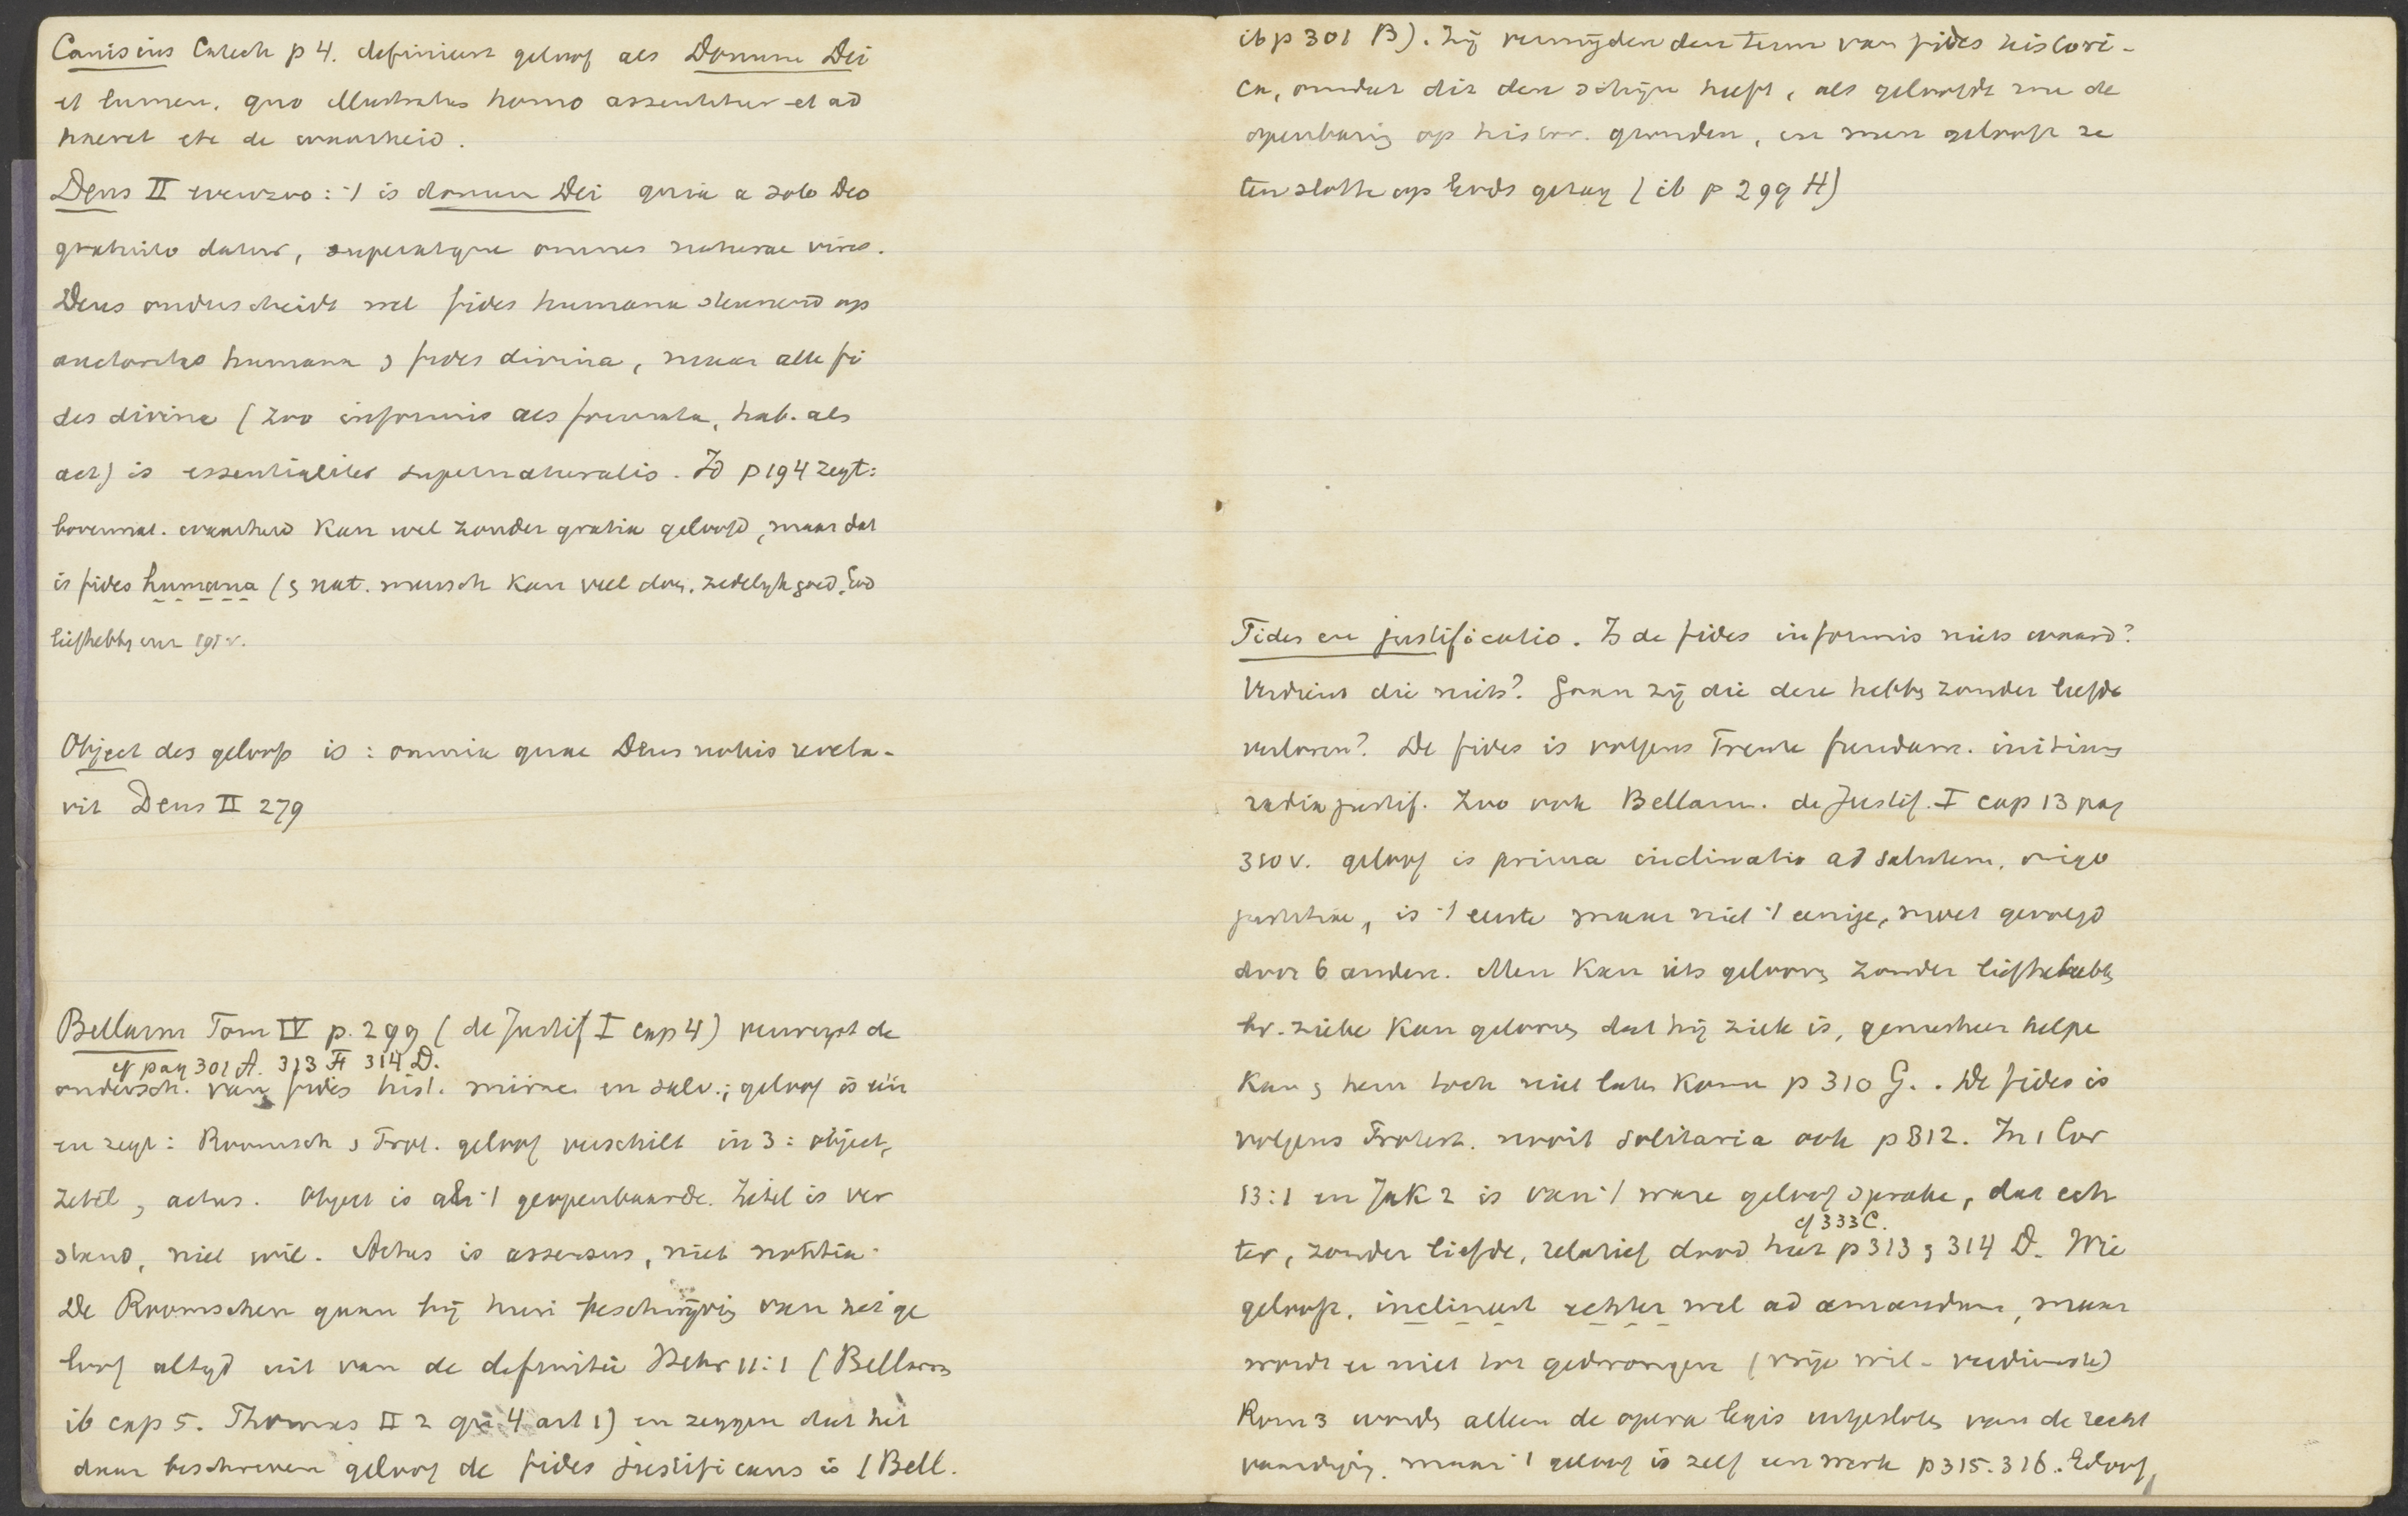 Canisius Catech p 4. definieert geloof als Donum Dei
et lumen, quo illustratus homo assentitur et ad
haeret etc de waarheid.
Dens II evenzoo: 't is donum Dei quia a solo Deo
gratuito datur, superatque omnes naturae vires.
Dens onderscheidt wel fides humana steunend op
auctoritas humana en fides divina, maar alle fi
des divina (zoo informis als formata, hab. als
act) is essentialiter supernaturalis. Id p 194 zegt:
bovennat. waarheid kan wel zonder gratia geloofd, maar dat
is fides humana (en nat. mensch kan veel doen, zedelijk goed, God
liefhebben enz 191v.
Object des geloofs is: omnia quae Deus nobis revela-
vit Dens II 279
Bellarm Tom IV p. 299 (de Justif I cap 4) verwerpt de
cf pag 301 A. 313 F 314 D.
ondersch. van fides hist. mirac. en salv.; geloof is één
en zegt: Roomsch en Prot. geloof verschilt in 3: object,
zetel, actus. Object is al 't geopenbaarde. Zetel is ver
stand, niet wil. Actus is assensus, niet notitia.
De Roomschen gaan bij hun beschrijving van het ge
loof altijd uit van de definitie Hebr 11:1 (Bellarm
ib cap 5. Thomas II 2 qu 4 art 1) en zeggen dat het
daar beschreven geloof de fides justificans is (Bell.
ib p 301 B). Zij vermijden den term van fides histori-
ca, omdat dit den schijn heeft, als geloofde men de
openbaring op histor. gronden, en men gelooft ze
ten slotte op Gods getuig (ib p 299 H)
Fides en justificatio. Is de fides informis niets waard?
Verdient die niets? Gaan zij die deze hebben zonder liefde
verloren? De fides is volgens Trente fundam. initium
radix justif. Zoo ook Bellarm. de Justif. I cap 13 pag
310 v. geloof is prima inclinatio ad salutem, origo
justitiae, is 't eerste maar niet 't eenige, moet gevolgd
door 6 andere. Men kan iets gelooven zonder liefhebben
bv. zieke kan gelooven dat hij ziek is, geneesheer helpen
kan en hem toch niet laten komen p 310 G. . De fides is
volgens Protest. nooit solitaria ook p 312. In 1 Cor
13:1 en Jak 2 is van 't ware geloof sprake, dat ech
cf 333 C.
ter, zonder liefde, relatief dood heet p 313 en 314 D. Wie
gelooft, inclineert echter wel ad amandum, maar
wordt er niet toe gedwongen (vrije wil - verdienste)
Rom 3 worden alleen de opera legis uitgesloten van de recht
vaardiging. maar 't geloof is zelf een werk p 315. 316. Geloof,